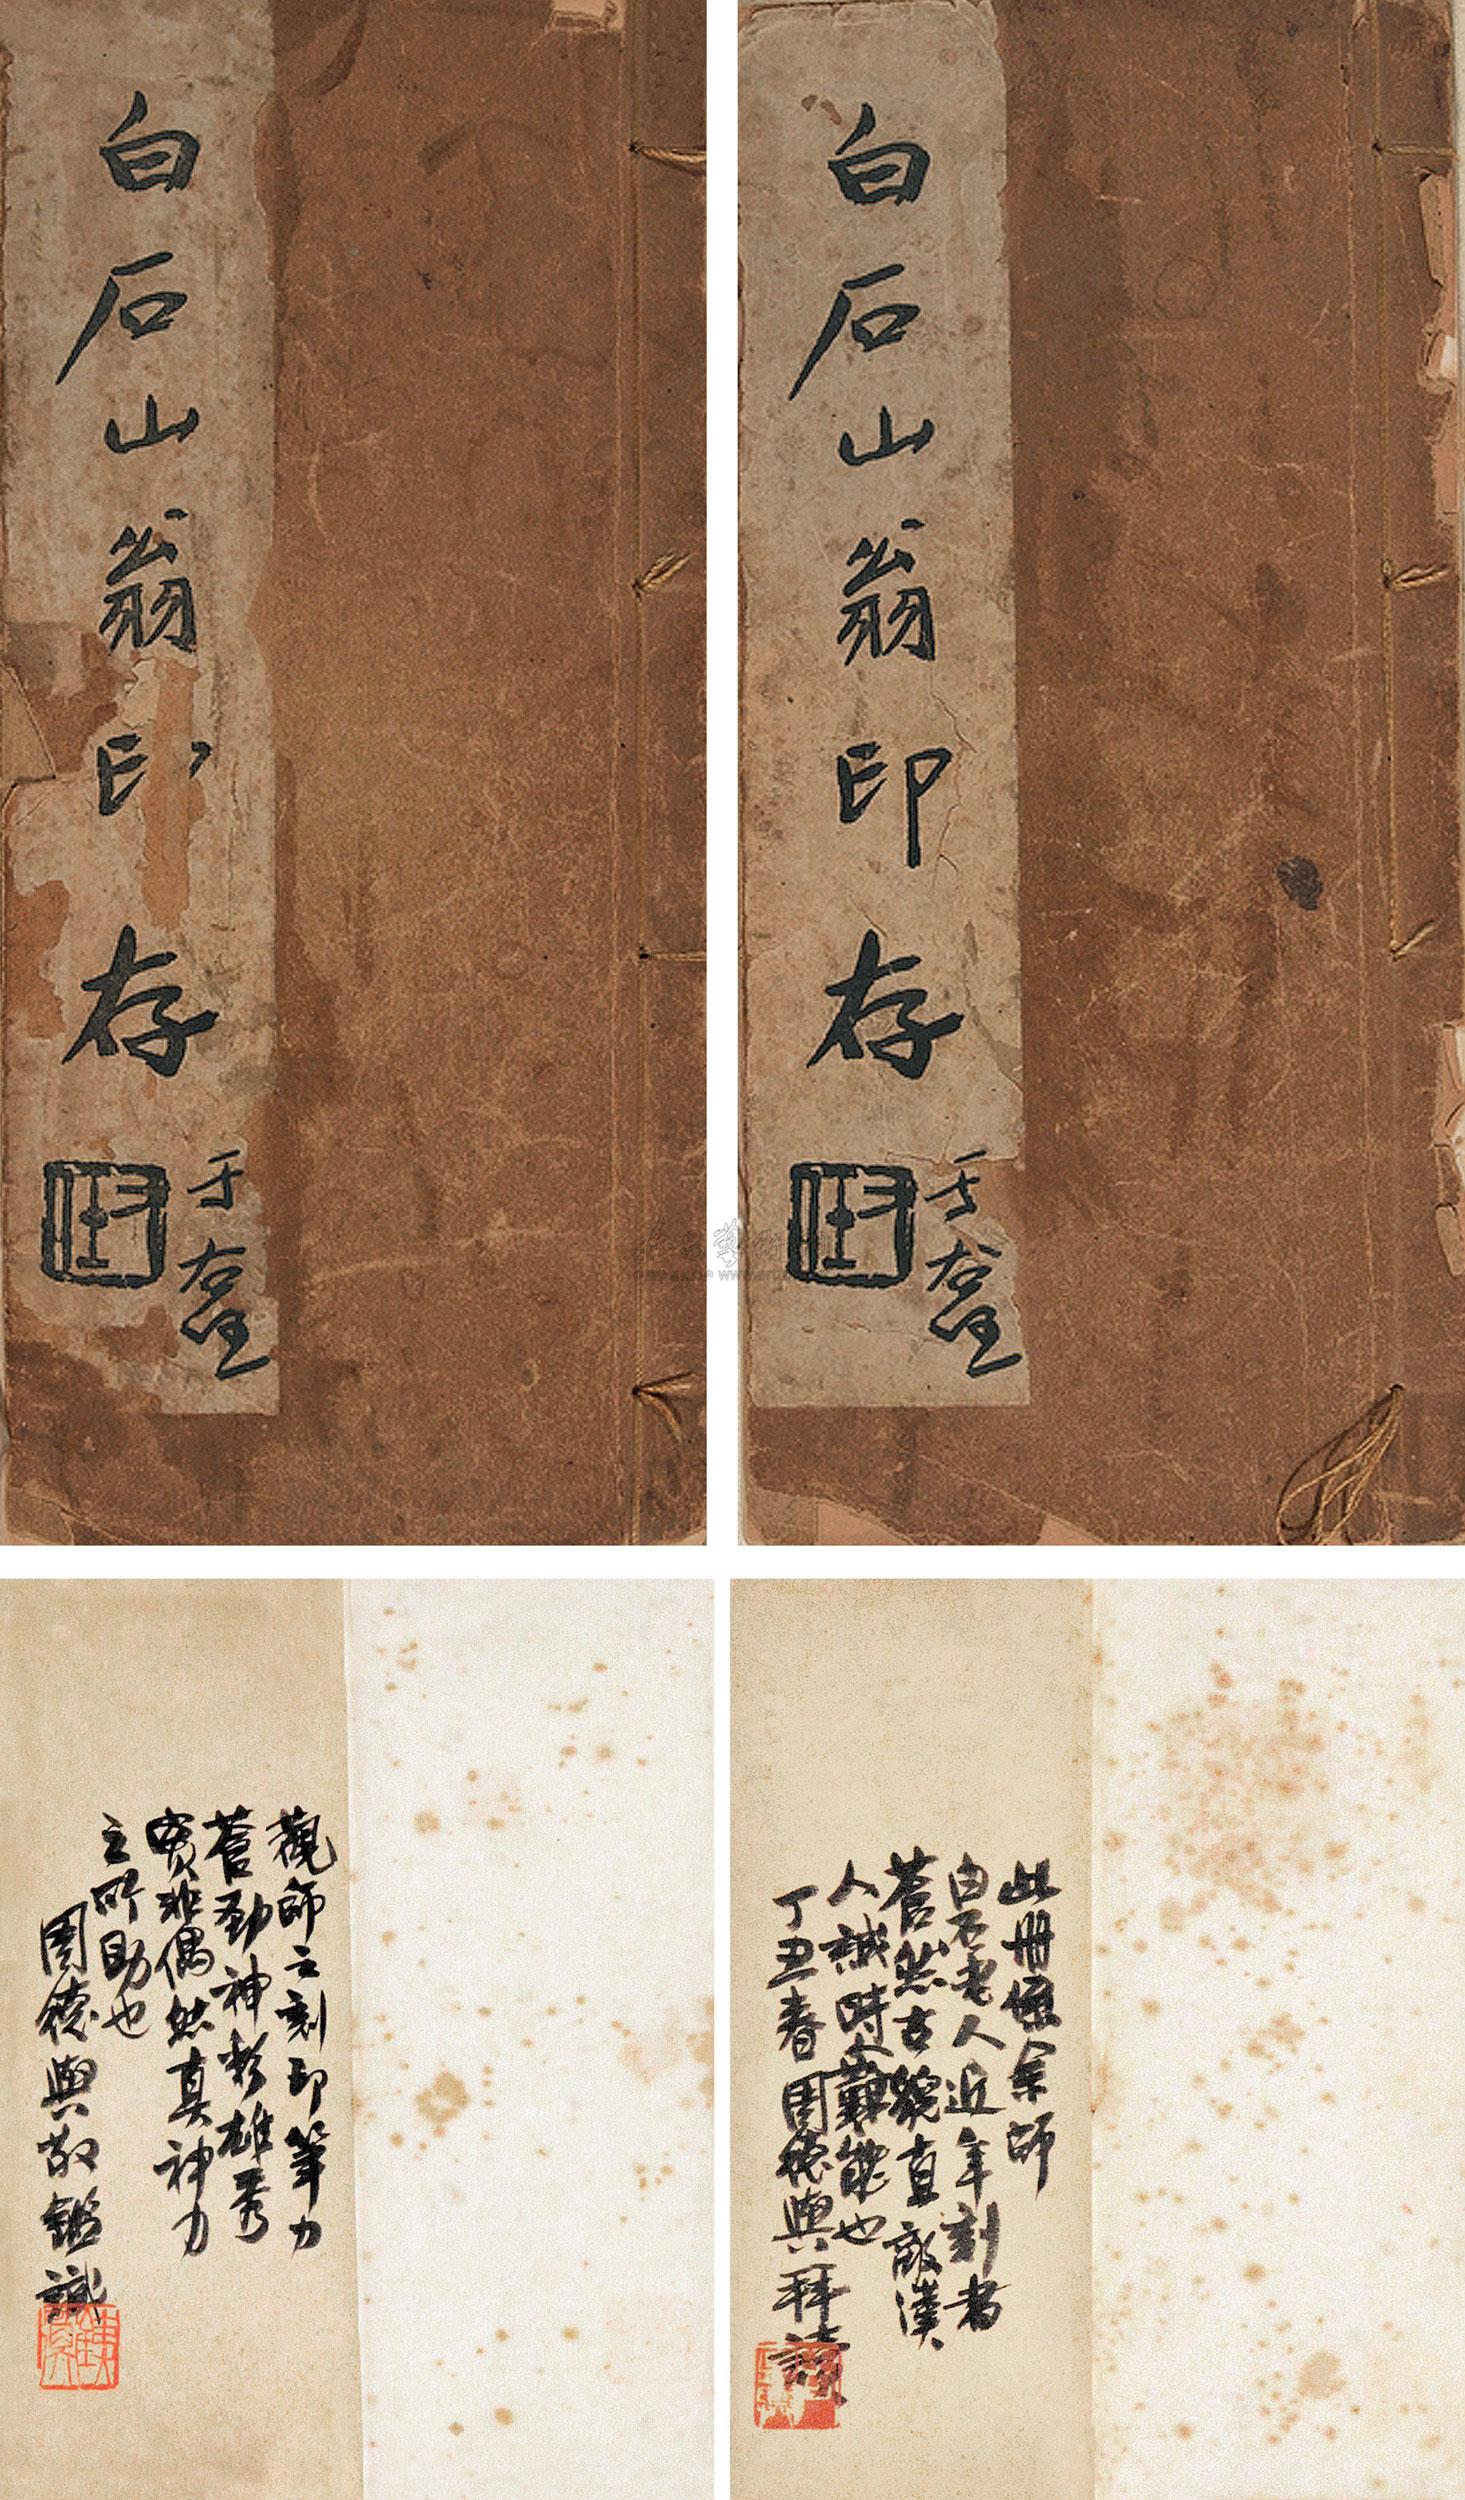 白石山翁印存
于右任
白石山翁印存
于右任
觀師之刻印筆力
蒼勁神彩雄秀
實非偶然真神力
之所助也
周德與敬觀識
此冊係余師
白石老人近年刻者
蒼然古貌直敵漢
人誠時人難能也
丁丑春周德與拜讀